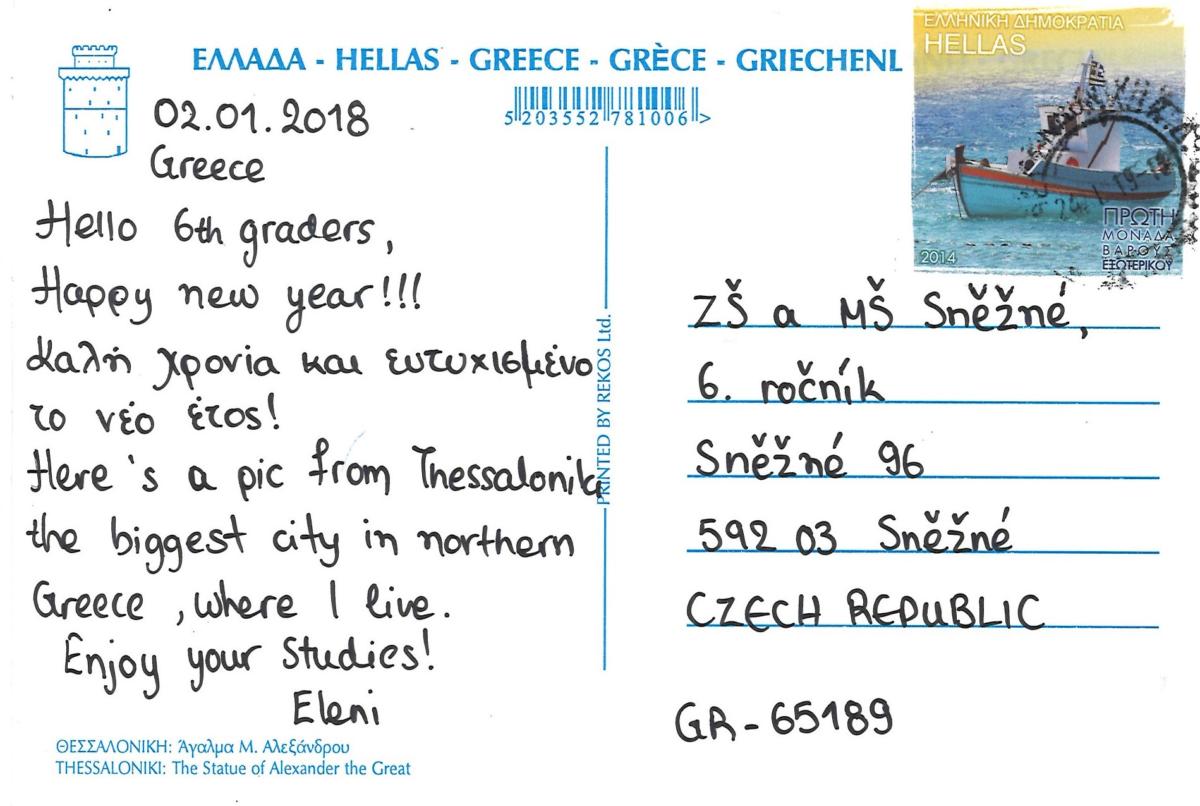 ΕΛΛΑΔΑ - HELLAS - GREECE - GRÈCE - GRIECHENL
5 203552 781006 >
02.01.2018
Greece
Hello 6th graders,
Happy new year!!!
Καλή χρονία και ευτυχισμένο
το νέο έτος!
Here's a pic from Thessaloniki
the biggest city in northern
Greece, where I live.
Enjoy your studies!
Eleni
ΘΕΣΣΑΛΟΝΙΚΗ: Άγαλμα Μ. Αλεξάνδρου
THESSALONIKI: The Statue of Alexander the Great
PRINTED BY REKOS Ltd.
ΕΛΛΗΝΙΚΗ ΔΗΜΟΚΡΑΤΙΑ
HELLAS
ΠΡΩΤΗ
ΜΟΝΑΔΑ
ΒΑΡΟΥΣ
ΕΞΩΤΕΡΙΚΟΥ
2014
ZŠ a MŠ Sněžné,
6. ročník
Sněžné 96
592 03 Sněžné
CZECH REPUBLIC
GR-65189